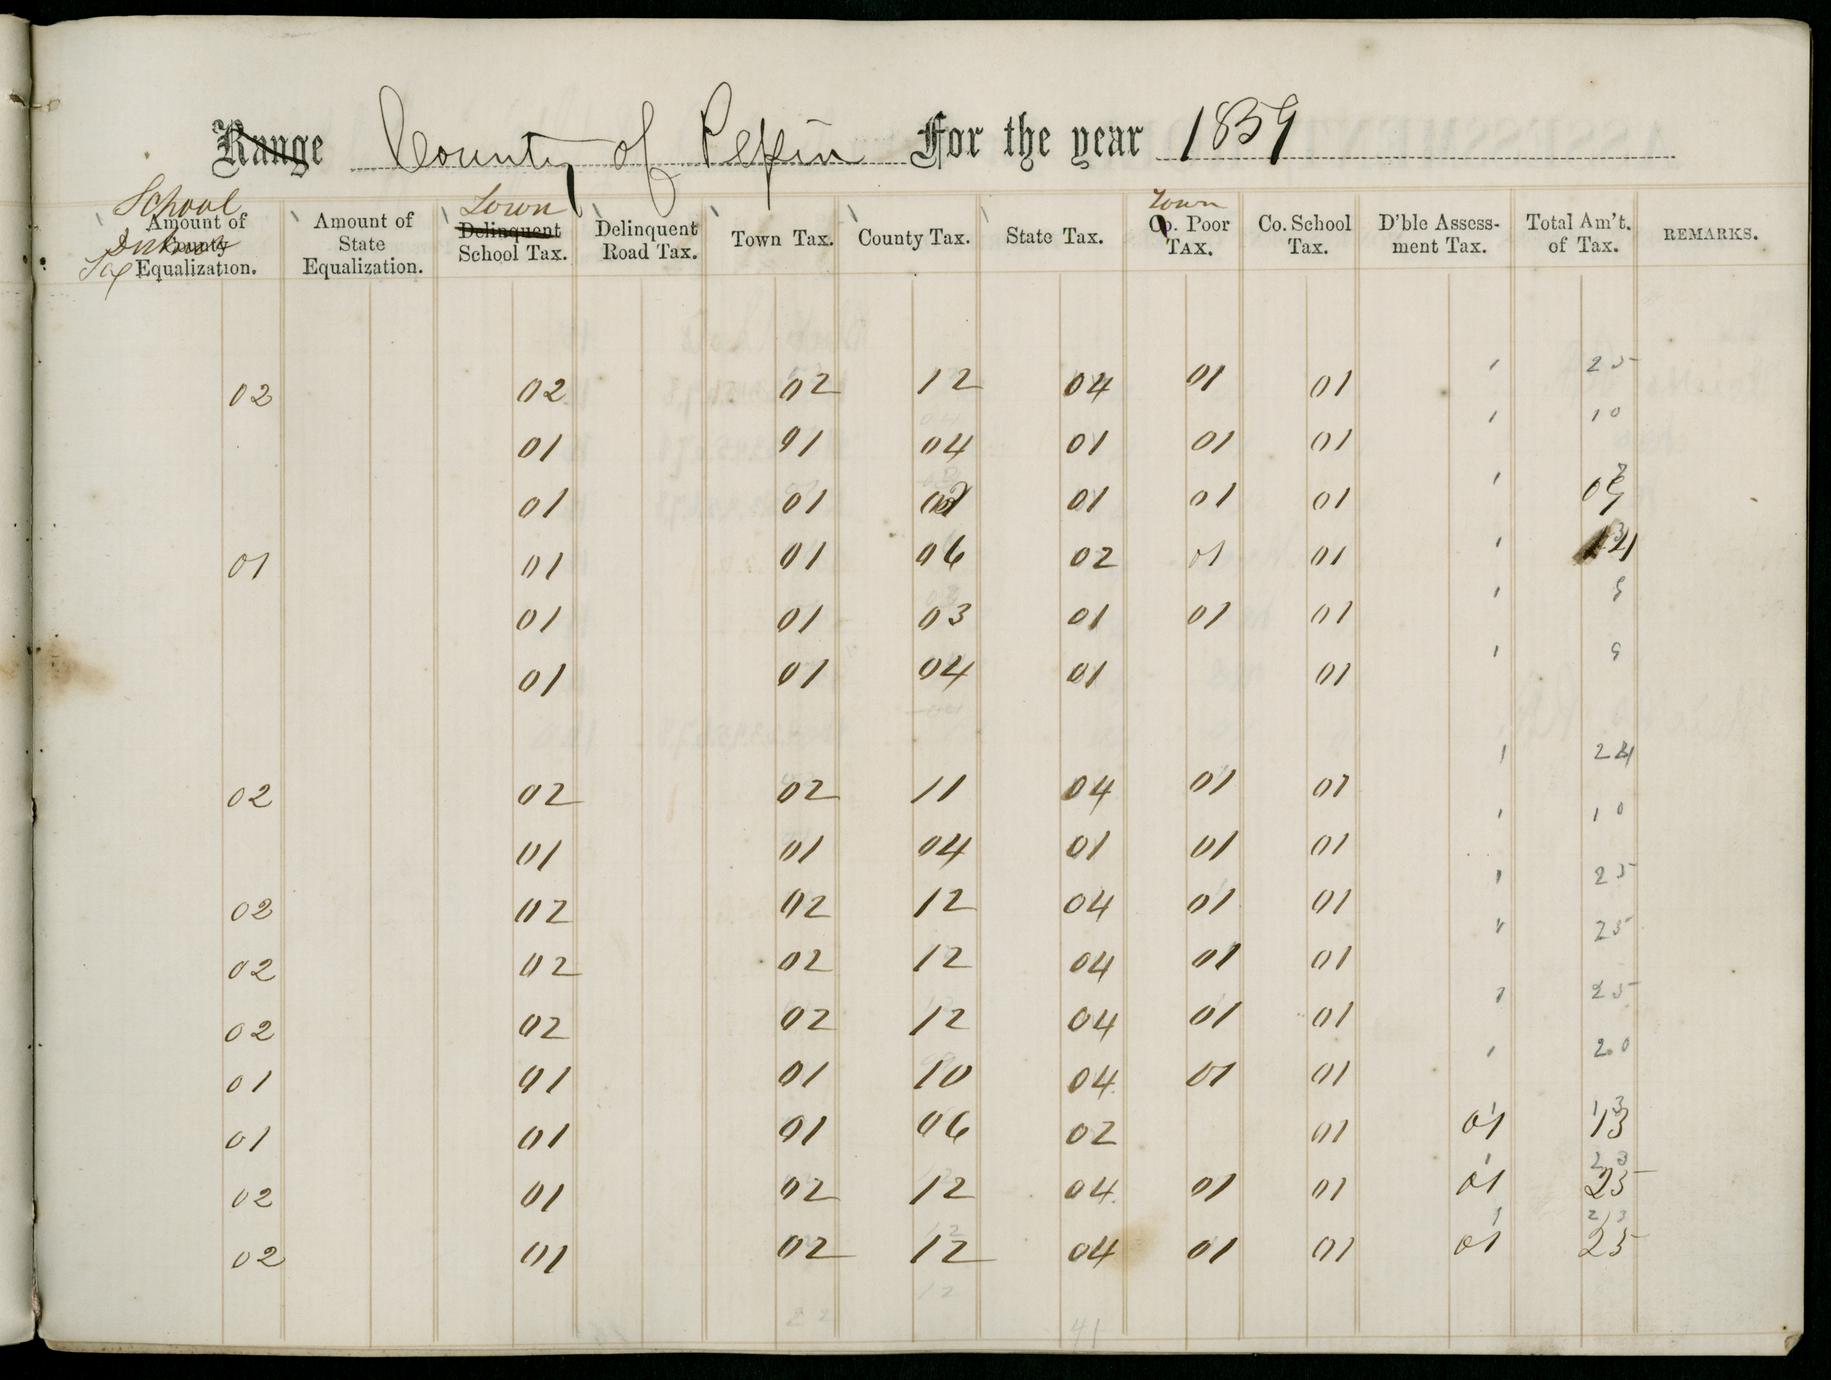 Range County of Pepin For the year 1859
School Town Town
Amount of County Equalization. Amount of State Equalization. Delinquent School Tax. Delinquent Road Tax. Town Tax. County Tax. State Tax. Co. Poor TAX. Co. School Tax. D'ble Assess-ment Tax. Total Am't. of Tax. REMARKS.
District
Tax
02 02 02 12 04 01 01 ' 25
01 01 04 01 01 01 ' 10
01 01 01 01 01 '
01 01 01 06 02 01 01 '
01 01 03 01 01 01 ' 9
01 01 04 01 01 ' 9
02 02 02 11 04 01 01 ' 24
01 01 04 01 01 01 ' 10
02 02 02 12 04 01 01 ' 25
02 02 02 12 04 01 01 ' 25
02 02 02 12 04 01 01 ' 25
01 01 01 10 04 01 01 ' 20
01 01 01 06 02 01 01 13
02 01 02 12 04 01 01 01 25
02 01 02 12 04 01 01 01 25